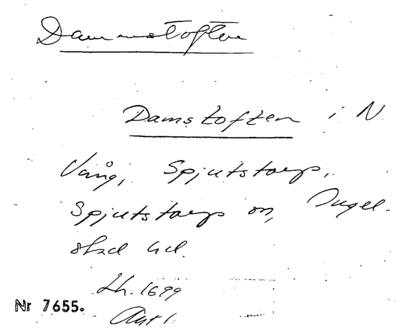 Dammstoften
Damstoften i N
Vång, Spjutstorp,
Spjutstorps sn, Ingel-
stad hd.
Lh. 1699
Akt 1.
Nr 7655.